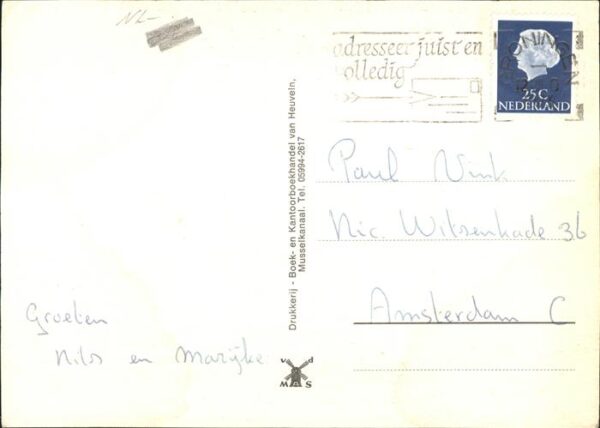 NL-
adresseer juist en
volledig
GRONINGEN
25 C
NEDERLAND
Drukkerij - Boek- en Kantoorboekhandel van Heuveln,
Musselkanaal. Tel. 05994-2617
Paul Vink
Nic. Witsenkade 36
Amsterdam C
Groeten
Nils en Marijke
v d
M S